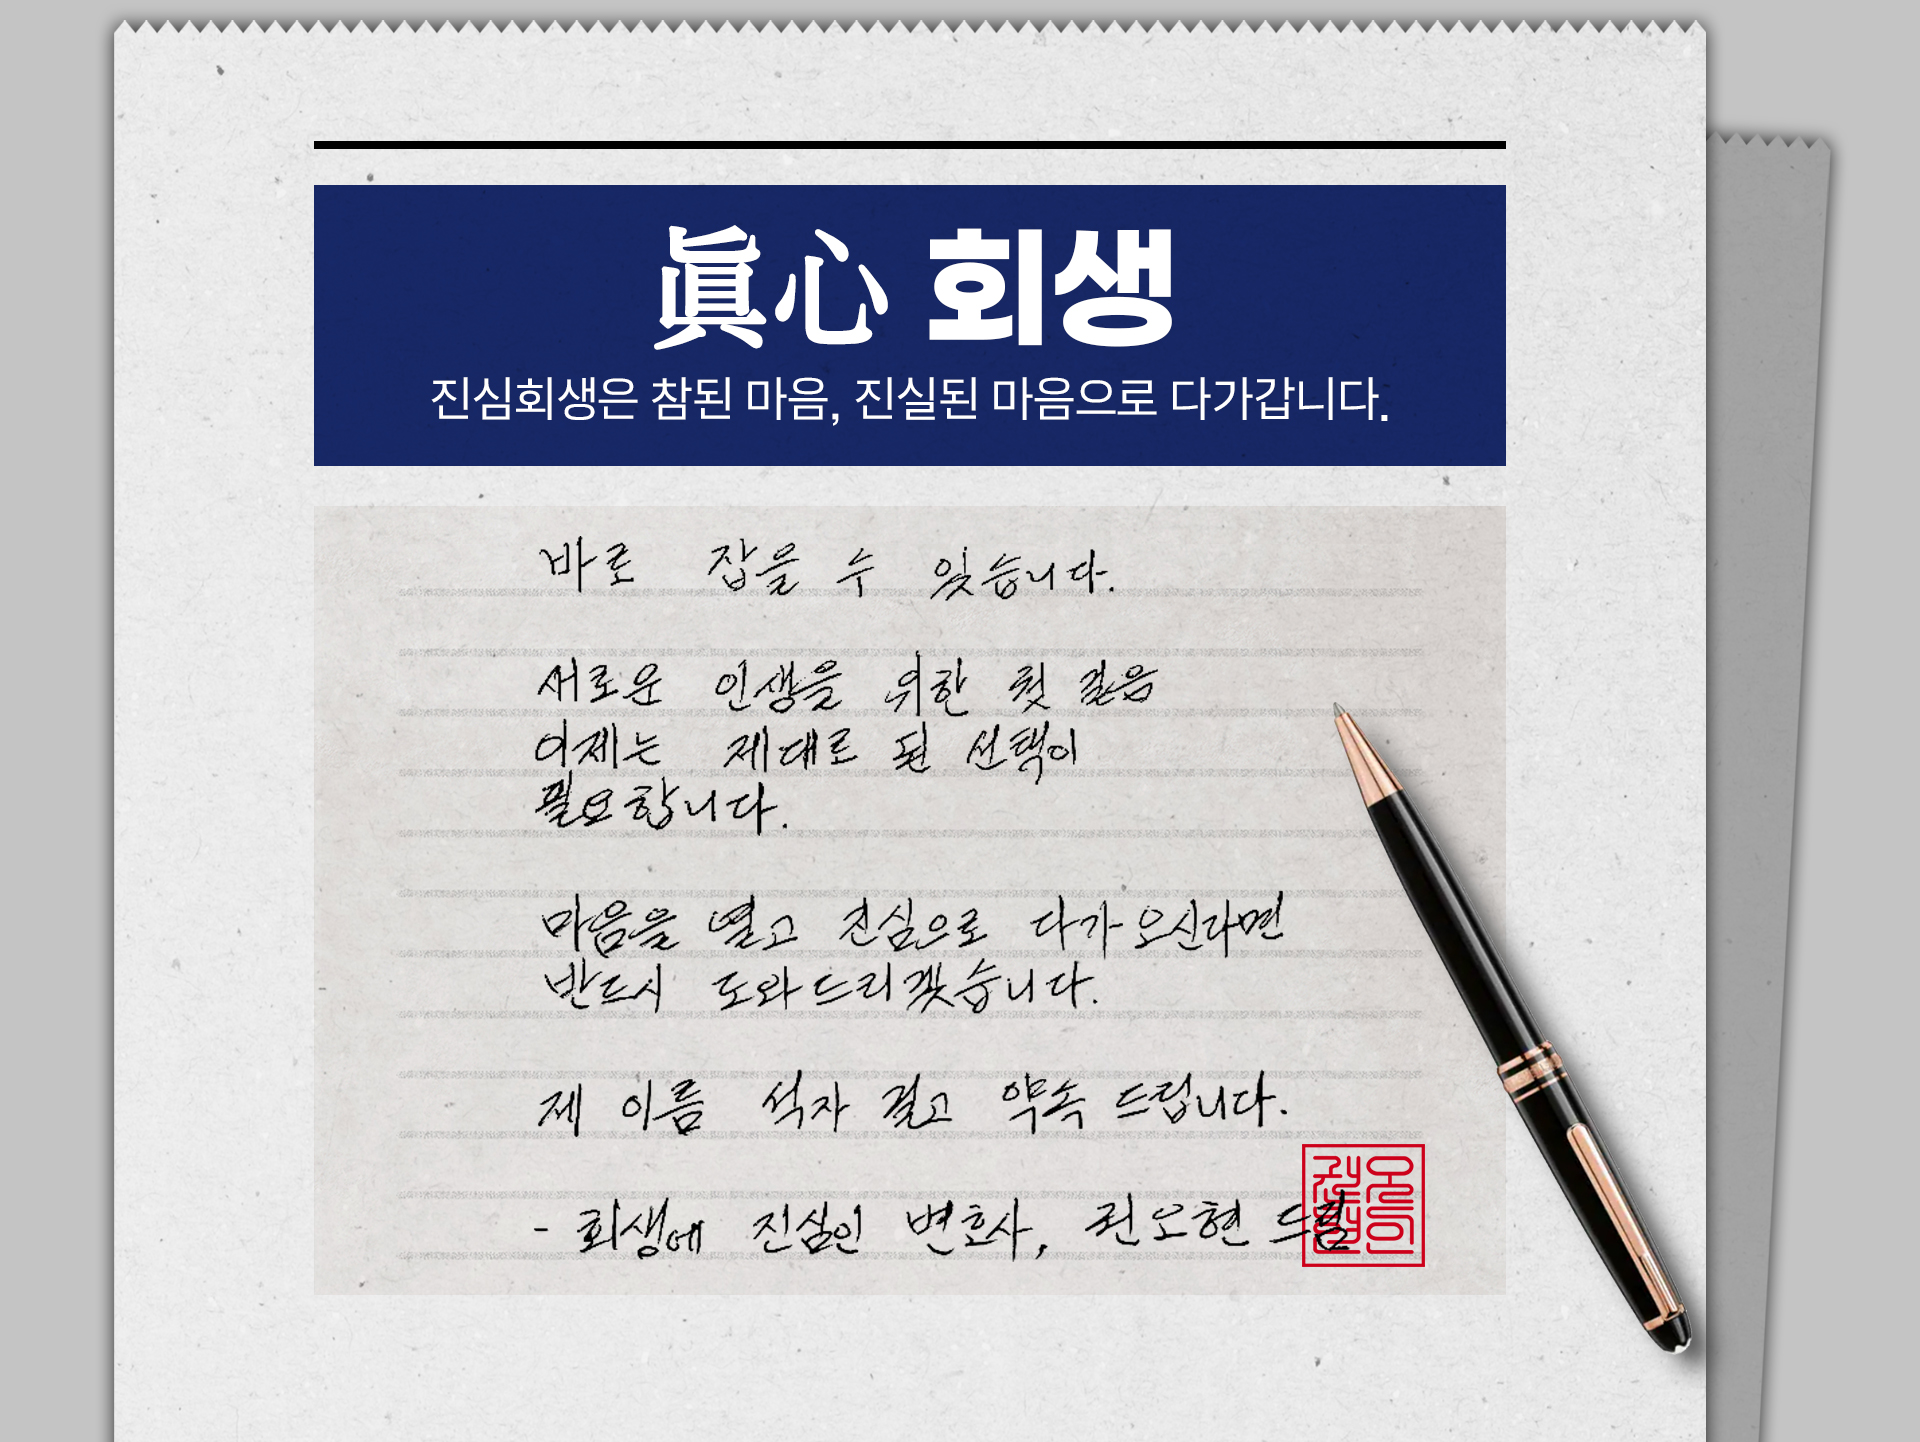 眞心 회생
진심회생은 참된 마음, 진실된 마음으로 다가갑니다.
바로 잡을 수 있습니다.
새로운 인생을 위한 첫 걸음
이제는 제대로 된 선택이
필요합니다.
마음을 열고 진심으로 다가오신다면
반드시 도와드리겠습니다.
제 이름 석자 걸고 약속 드립니다.
- 회생에 진심인 변호사, 권오현 드림